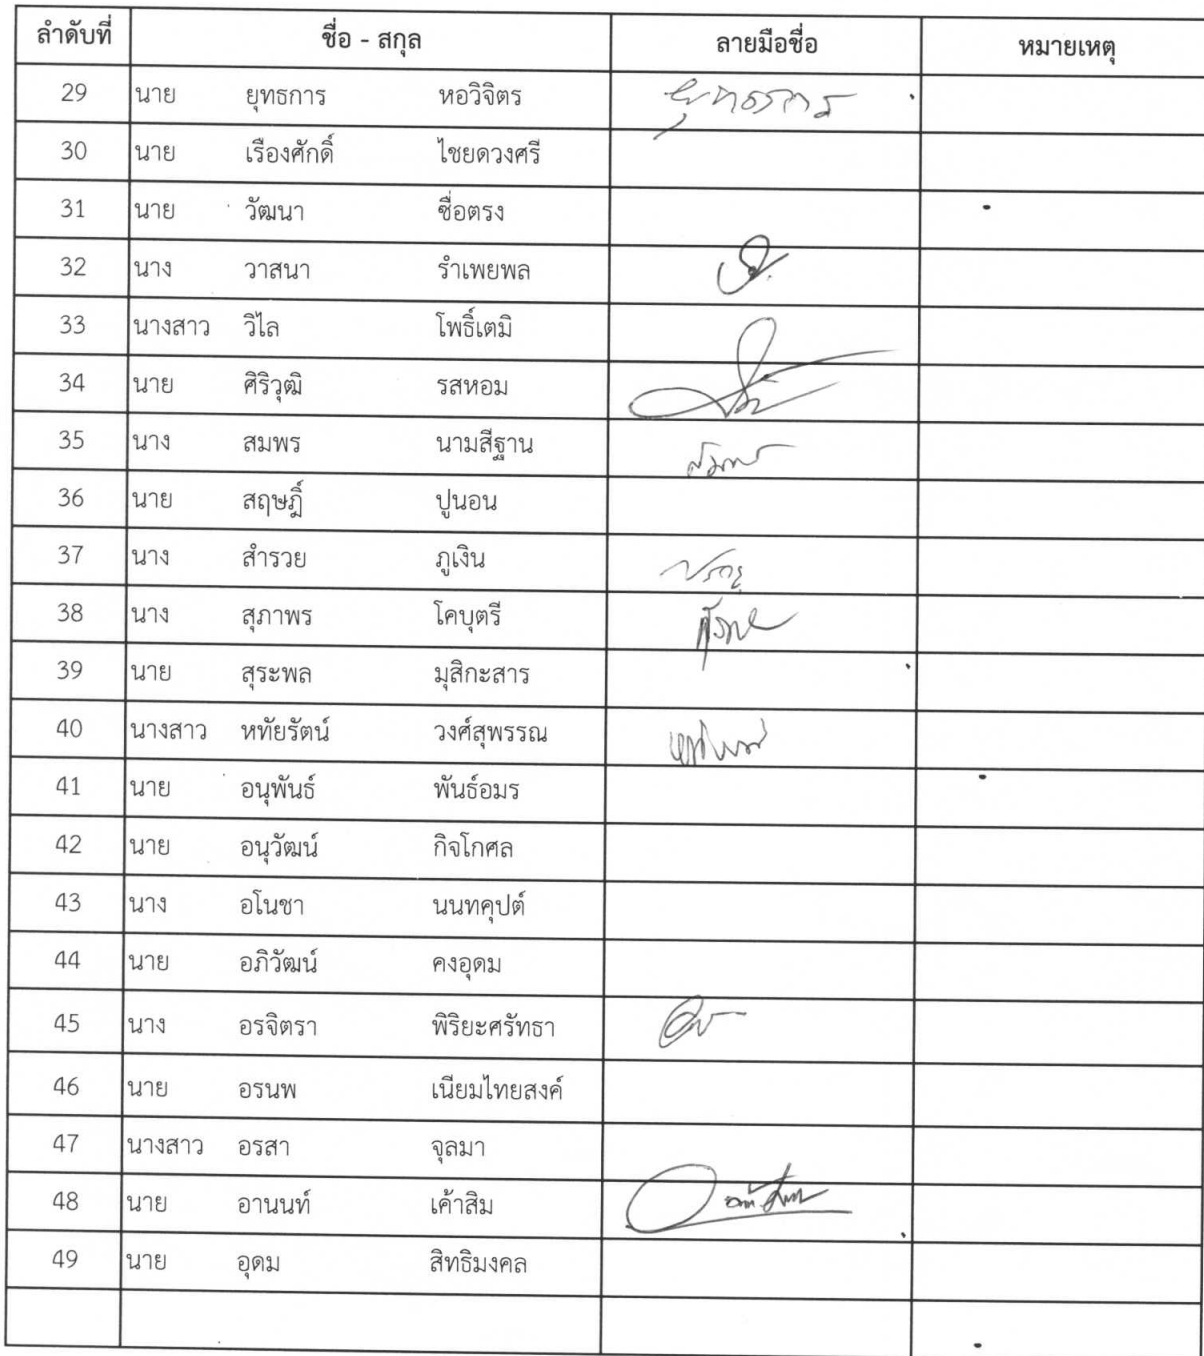 ลำดับที่ ชื่อ - สกุล ลายมือชื่อ หมายเหตุ
29 นาย ยุทธการ หอวิจิตร ยุทธการ
30 นาย เรืองศักดิ์ ไชยดวงศรี
31 นาย วัฒนา ซื่อตรง
32 นาง วาสนา รำเพยพล
33 นางสาว วิไล โพธิ์เตมิ
34 นาย ศิริวุฒิ รสหอม
35 นาง สมพร นามสีฐาน สมพร
36 นาย สฤษฎิ์ ปูนอน
37 นาง สำรวย ภูเงิน
38 นาง สุภาพร โคบุตรี
39 นาย สุระพล มุสิกะสาร
40 นางสาว หทัยรัตน์ วงศ์สุพรรณ
41 นาย อนุพันธ์ พันธ์อมร
42 นาย อนุวัฒน์ กิจโกศล
43 นาง อโนชา นนทคุปต์
44 นาย อภิวัฒน์ คงอุดม
45 นาง อรจิตรา พิริยะศรัทธา
46 นาย อรนพ เนียมไทยสงค์
47 นางสาว อรสา จุลมา
48 นาย อานนท์ เค้าสิม
49 นาย อุดม สิทธิมงคล